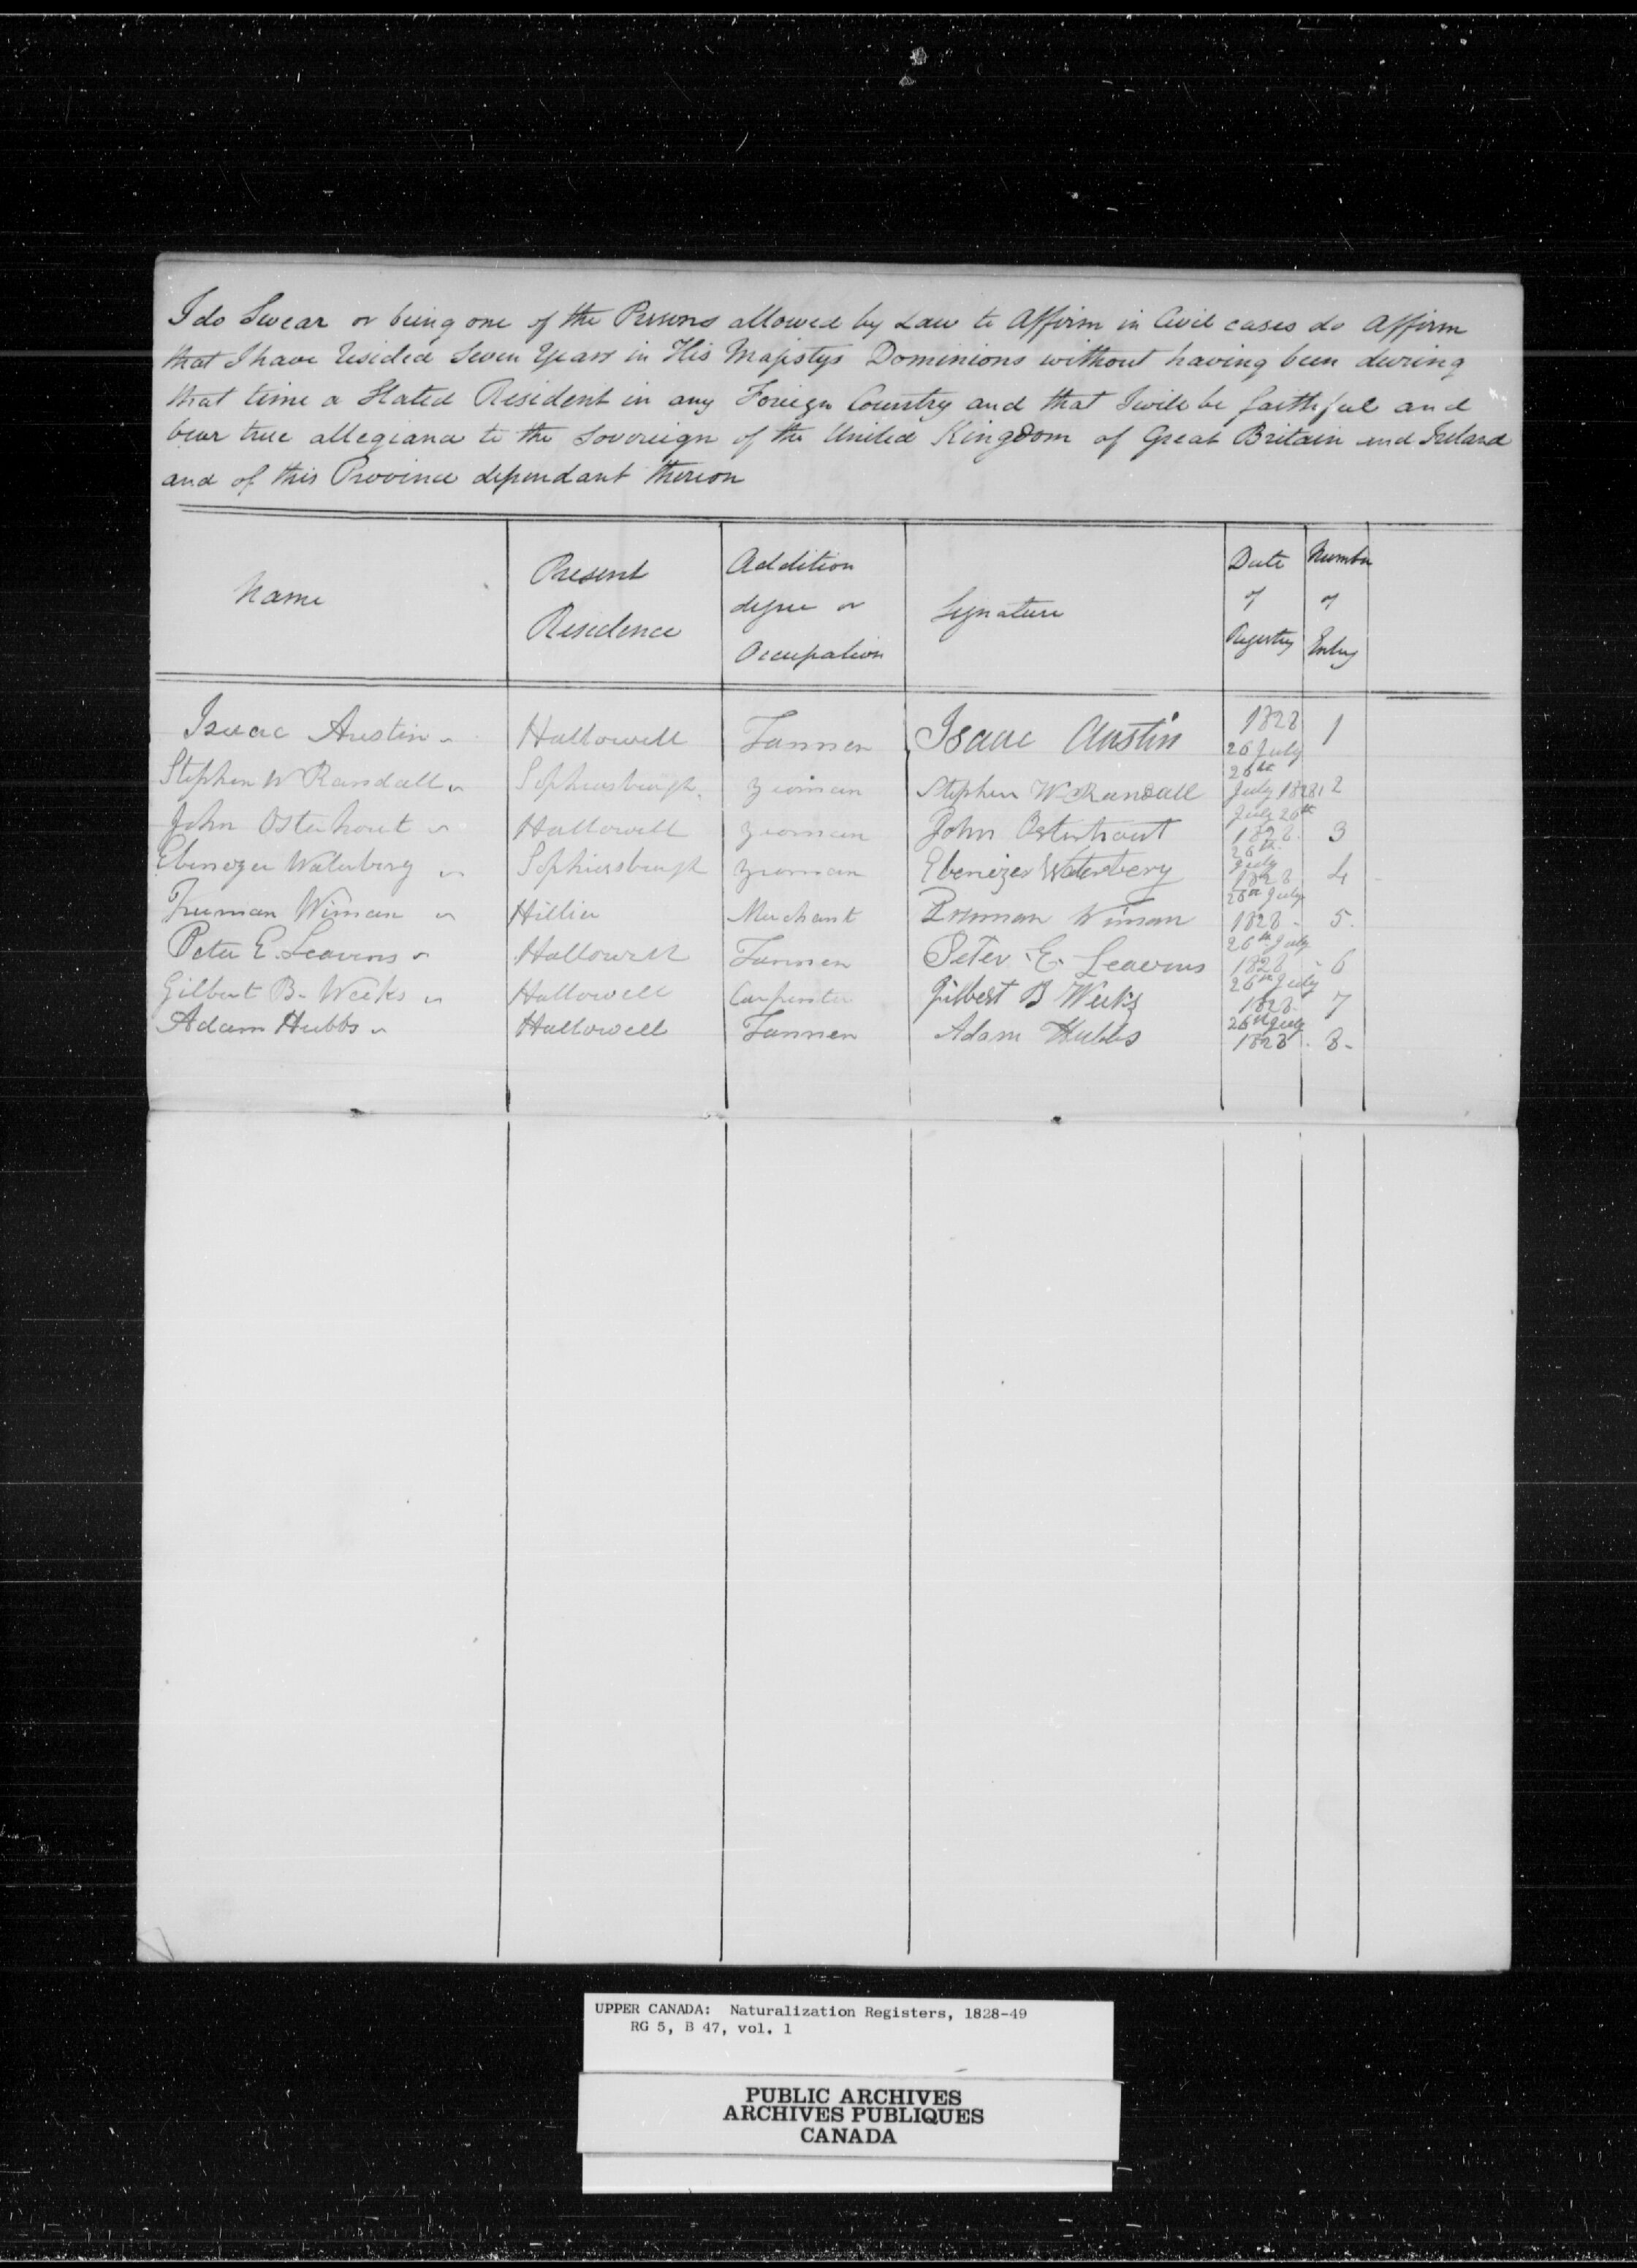 I do Swear or being one of the Persons allowed by Law to Affirm in Civil cases do Affirm
that I have resided Seven Years in His Majestys Dominions without having been during
that time a Stated Resident in any Foreign Country and that I will be faithful and
bear true allegiance to the Sovereign of the United Kingdom of Great Britain and Ireland
and of this Province dependant thereon
Name Present Residence Addition degree or Occupation Signature Date of Registry Number of Entry
Isaac Austin Hallowell Tanner Isaac Austin 1828 26 July 1
Stephen W Randall Sophiasburgh yeoman Stephen W Randall 26th July 1828 2
John Osterhout Hallowell yeoman John Osterhout July 26th 1828 3
Ebenezer Waterbery Sophiasburgh yeoman Ebenezer Waterbery 26th July 1828 4
Truman Wiman Hillier Merchant Truman Wiman 26th July 1828 5
Peter E. Leavens Hallowell Tanner Peter E. Leavens 26th July 1828 6
Gilbert B. Weeks Hallowell Carpenter Gilbert B Weeks 26th July 1828 7
Adam Hubbs Hallowell Tanner Adam Hubbs 26th July 1828 8
UPPER CANADA: Naturalization Registers, 1828-49
RG 5, B 47, vol. 1
PUBLIC ARCHIVES
ARCHIVES PUBLIQUES
CANADA